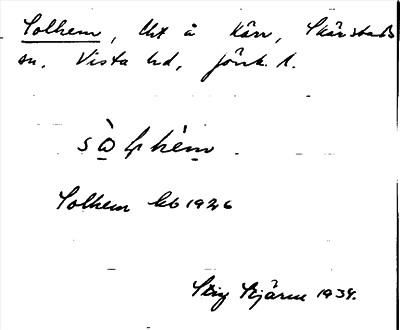 Solhem, lht å Kärr, Skärstads
sn. Vista hd, Jönk. l.
sòlhèm
Solhem kb 1926
Stig Bjärme 1934.